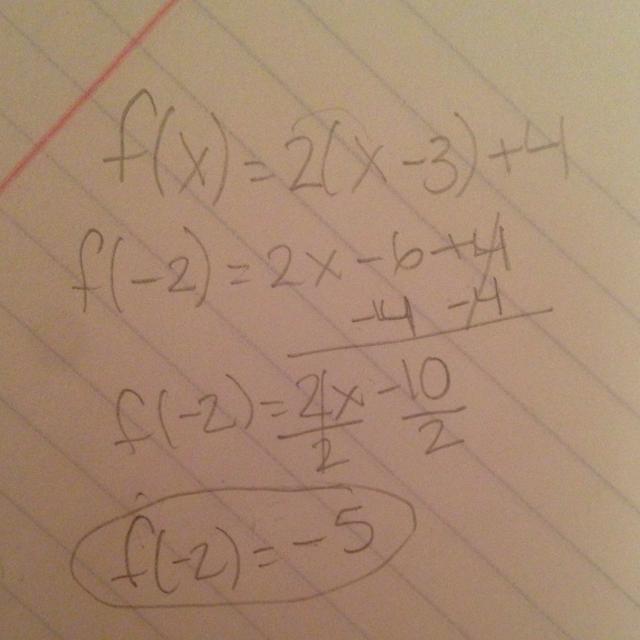 f'(x) = 2(x - 3) + 4
f'(-2) = 2x - 6 + 4
-4 -4
f'(-2) = 2x - 10
2 2
f'(-2) = -5